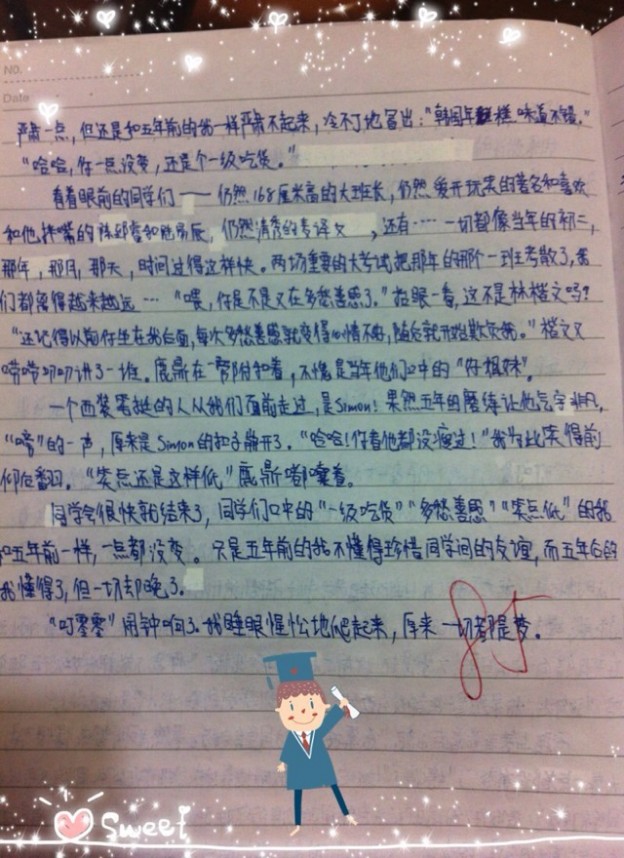 No.
Date
严肃一点，但还是和五年前的我一样严肃不起来，冷不丁地冒出："韩国年糕 味道不错。"
"哈哈，你一点没变，还是个一级吃货。"
看着眼前的同学们——仍然168厘米高的大班长，仍然爱开玩笑的著名和喜欢
和他拌嘴的 仍然清秀的 ，还有…… 一切都像当年的初二，
那年，那月，那天，时间过得这样快。两场重要的大考试把那年的那个一班考散了，我
们都离得越来越远…"喂，你是不是又在多愁善感了。"抬眼一看，这不是林楷文吗？
"还记得以前你坐在我后面，每次多愁善感就变得心情不好，随后就开始欺负我。"楷文又
唠唠叨叨讲了一堆。鹿鼎在一旁附和着，不愧是当年他们口中的
一个西装笔挺的人从我们面前走过，是Simon！果然五年的磨练让他气宇非凡，
"嘭"的一声，原来是Simon的扣子崩开了。"哈哈！你看他都没瘦过！"我为此笑得前
仰后翻。"笑点还是这样低"鹿鼎嘟囔着。
同学会很快就结束了，同学们口中的"一级吃货""多愁善感""笑点低"的我
和五年前一样，一点都没变。只是五年前的我不懂得珍惜同学间的友谊，而五年后的
我懂得了，但一切却晚了。
"叮零零"闹钟响了。我睡眼惺忪地爬起来，原来一切都是梦。
Sweet